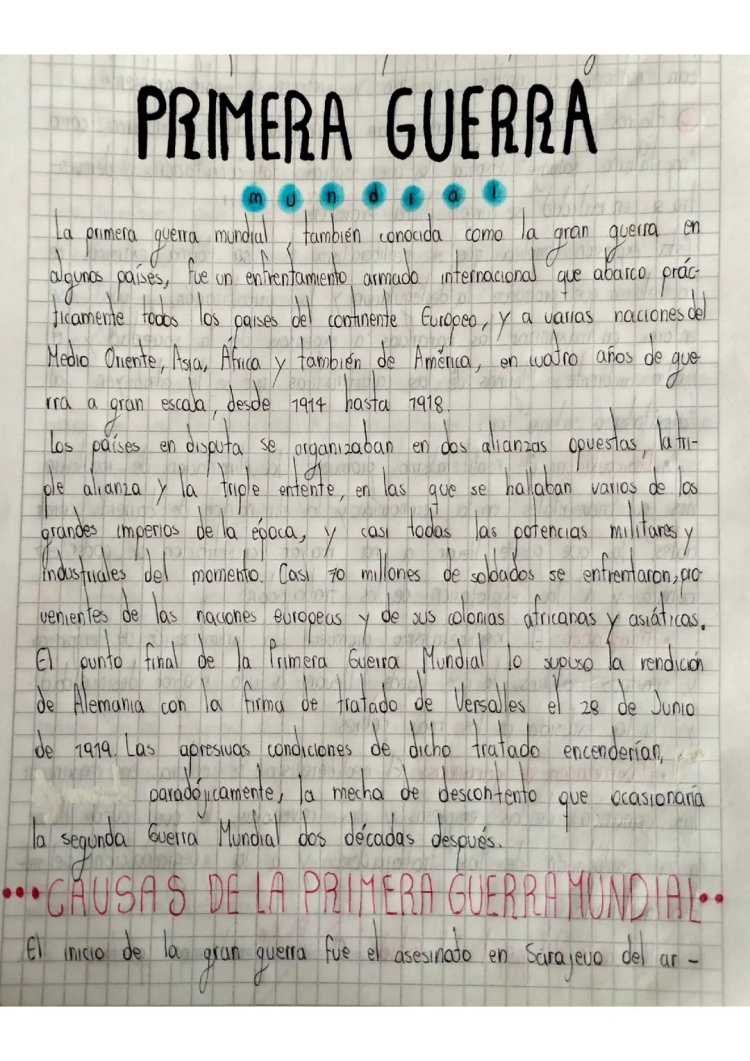 PRIMERA GUERRA
mundial
La primera guerra mundial, también conocida como la gran guerra en
algunos países, fue un enfrentamiento armado internacional que abarco prác-
ticamente todos los paises del continente Europeo, y a varias naciones del
Medio Oriente, Asia, África y también de América, en cuatro años de gue
rra a gran escala, desde 1914 hasta 1918.
Los países en disputa se organizaban en dos alianzas opuestas, la tri-
ple alianza y la triple entente, en las que se hallaban varios de los
grandes imperios de la época, y casi todas las potencias militares y
industriales del momento. Casi 70 millones de soldados se enfrentaron, pro-
venientes de las naciones europeas y de sus colonias africanas y asiáticas.
El punto final de la Primera Guerra Mundial lo supuso la rendición
de Alemania con la firma de tratado de Versalles el 28 de Junio
de 1919. Las apresivas condiciones de dicho tratado encenderían,
paradójicamente, la mecha de descontento que ocasionaría
la segunda Guerra Mundial dos décadas después.
•••CAUSAS DE LA PRIMERA GUERRA MUNDIAL••
El inicio de la gran guerra fue el asesinado en Sarajevo del ar-